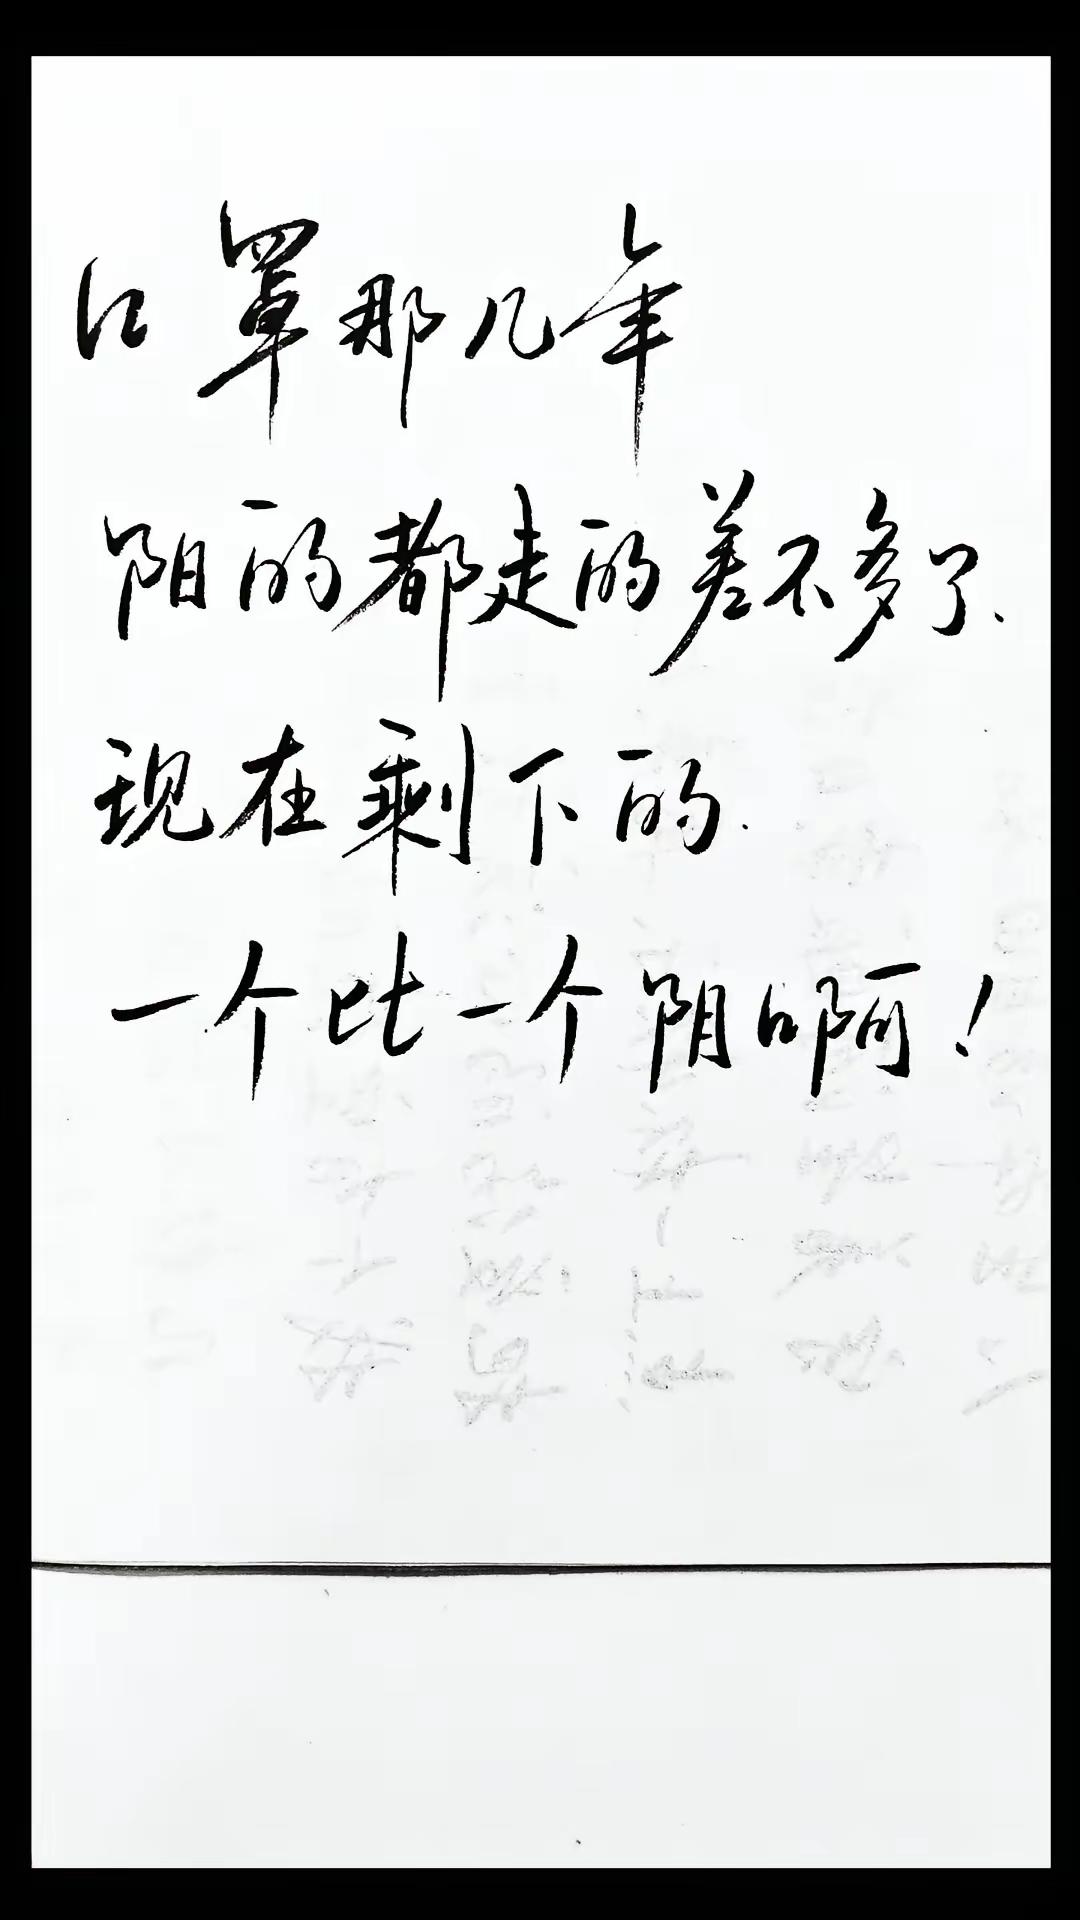 口罩那几年
阳的都走的差不多了、
现在剩下的.
一个比一个阴啊！